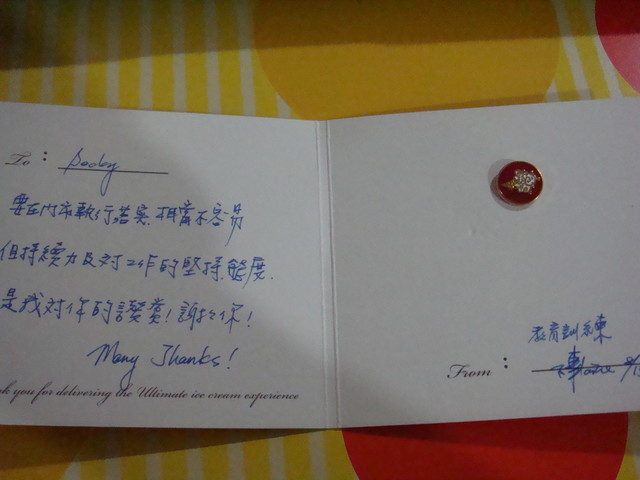 To :
要在門市執行落實,相當不容易
但持續力及對工作的堅持,態度,
是我對你的讚賞!謝謝你!
Many Thanks!
k you for delivering the Ultimate ice cream experience
教育訓練
From :